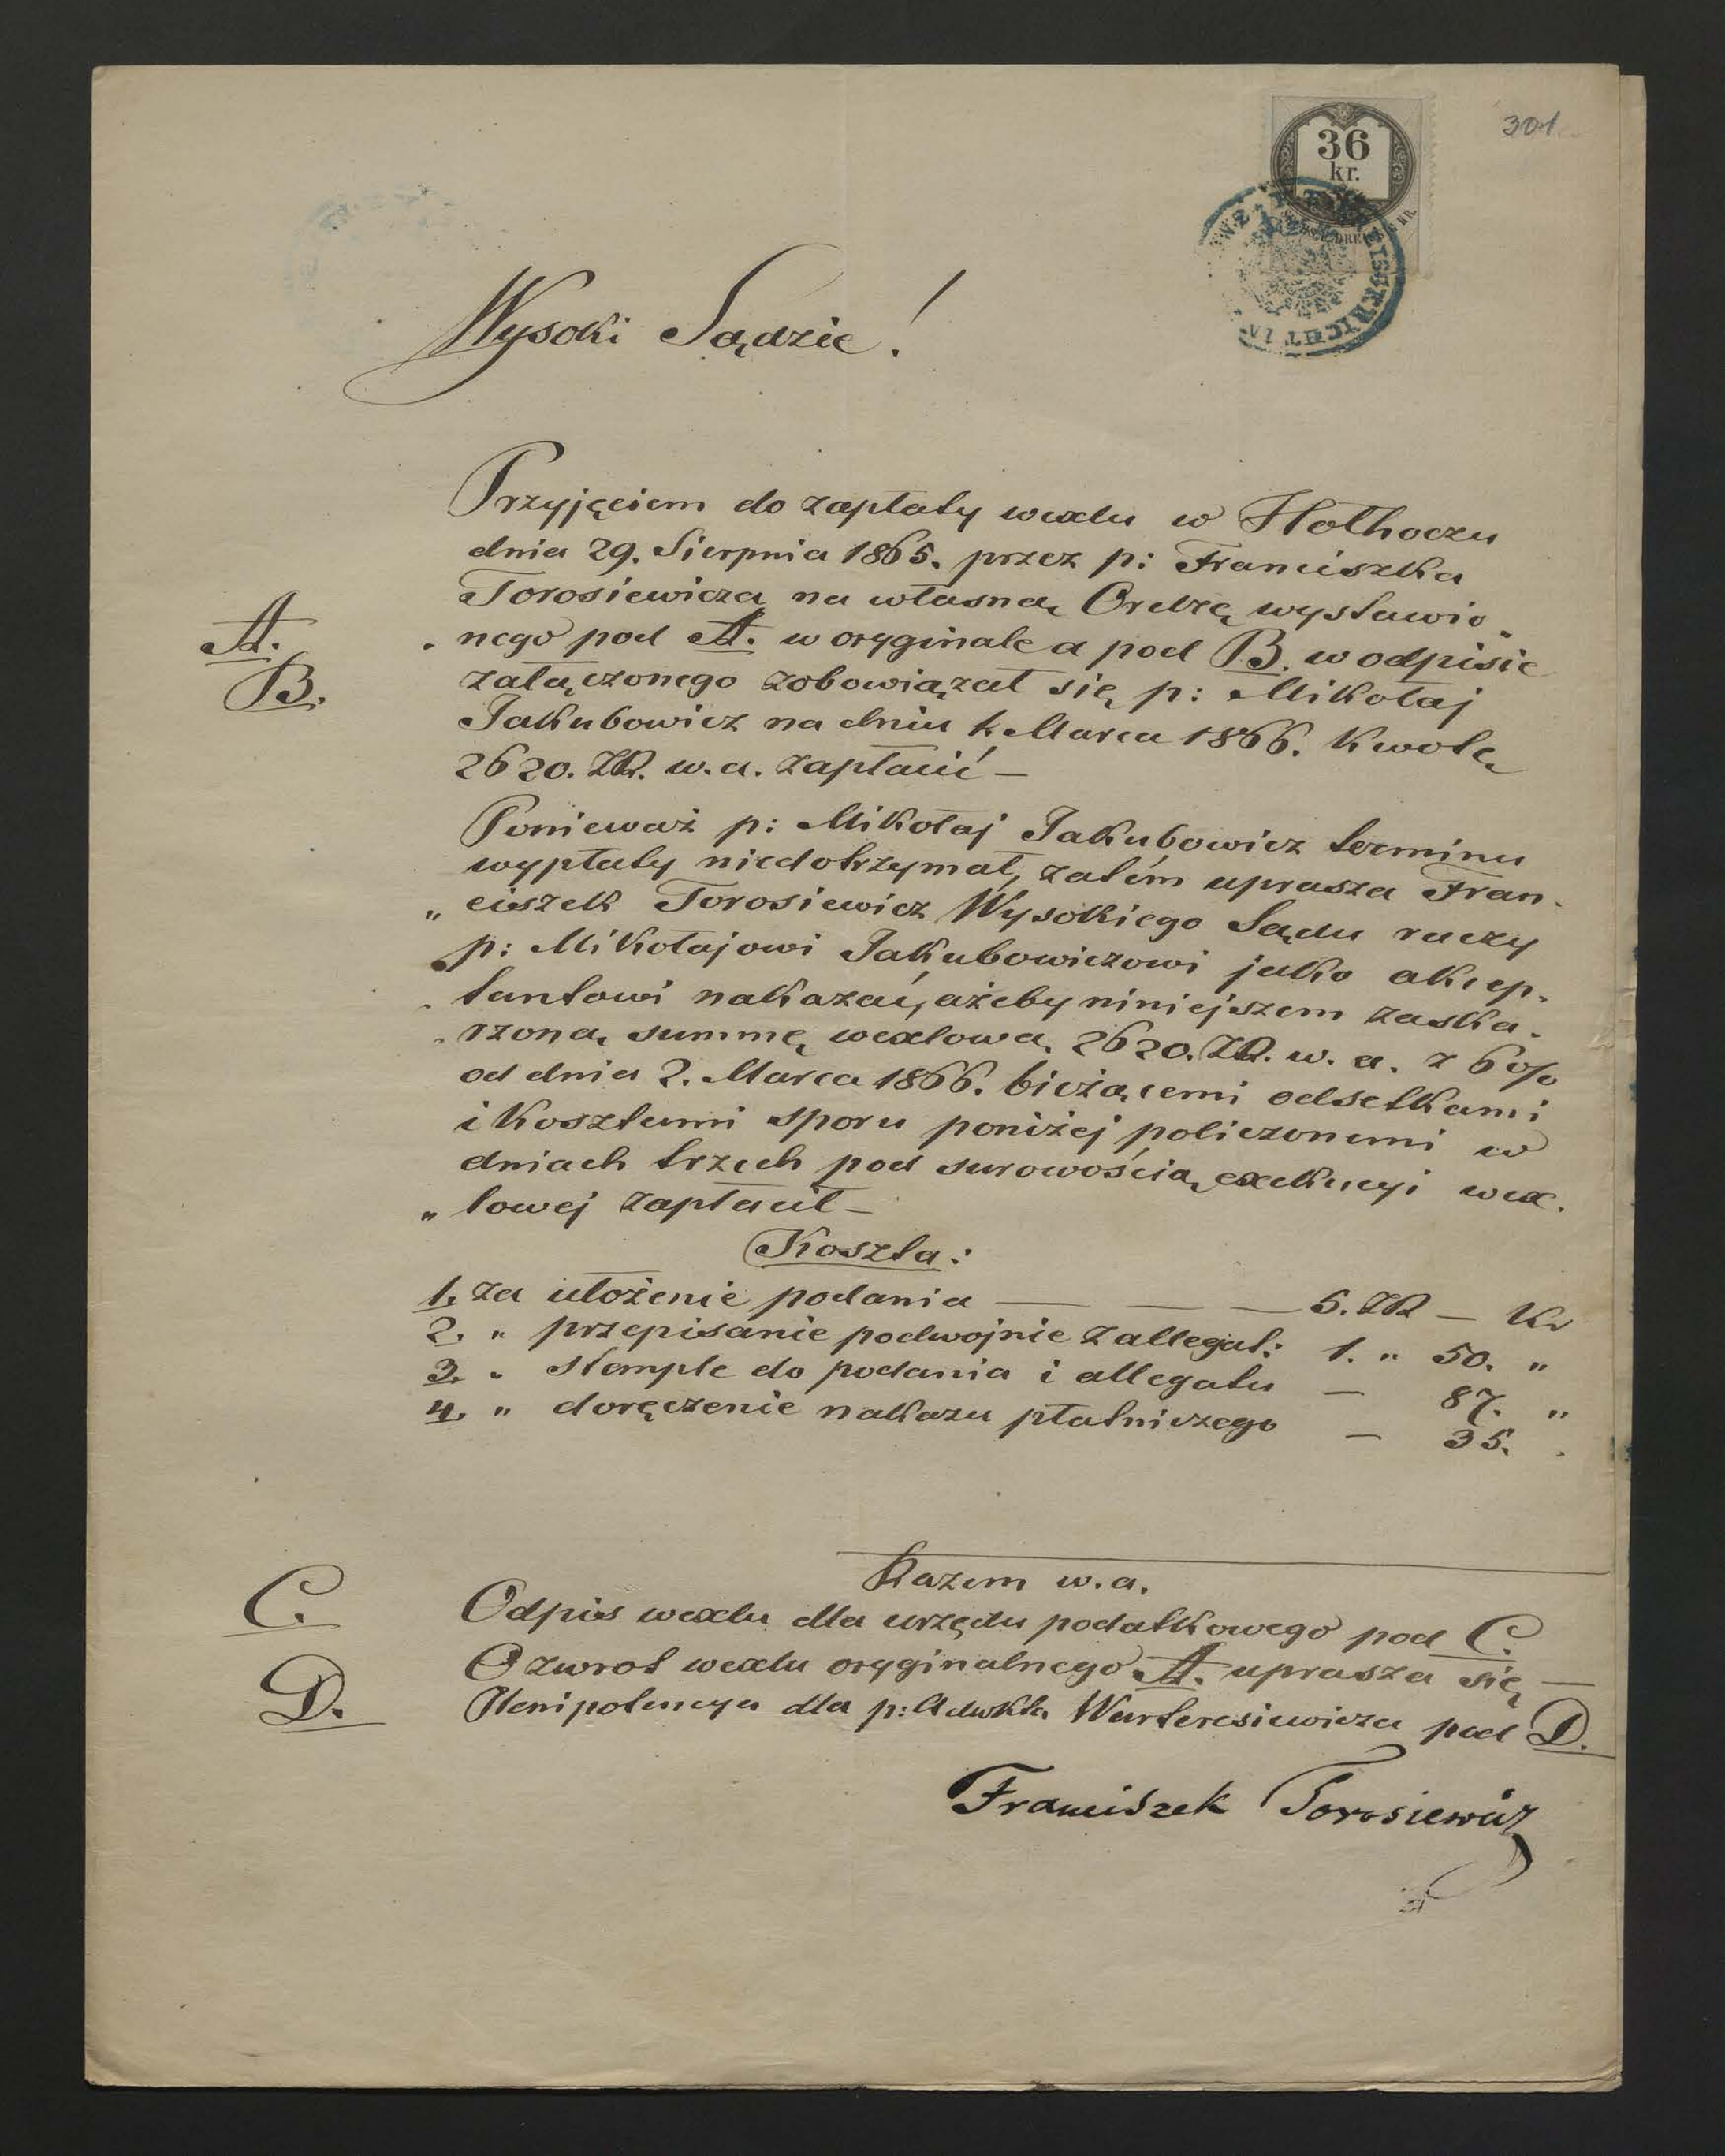 301
36
kr.
Wysoki Sądzie!
Przyjęciem do zapłaty wexlu w Hołhoczu
dnia 29. Sierpnia 1865. przez p: Franciszka
Torosiewicza na własną Ordrę wystawio„
A.
„nego pod A. w oryginale a pod B. w odpisie
B.
załączonego zobowiązał się p: Mikołaj
Jakubowicz na dniu 1. Marca 1866. kwotę
2620. ZR. w.a. zapłacić —
Ponieważ p: Mikołaj Jakubowicz terminu
wypłaty niedotrzymał, zatém uprasza Fran-
„ciszek Torosiewicz Wysokiego Sądu raczy
p: Mikołajowi Jakubowiczowi jako akcep-
-tantowi nakazać, ażeby niniejszem zaska-
-rzoną summę wexlową 2620. ZR. w. a. z 6%
od dnia 2. Marca 1866. bieżącemi odsetkami
i kosztami sporu poniżej policzonemi w
dniach trzech pod surowością exekucyi wex-
„lowej zapłacił —
Koszta:
1. za ułożenie podania — — — 5. ZR — Kr
2. „ przepisanie podwojnie z allegat: 1. „ 50. „
3. „ stemple do podania i allegatu — 87. „
4. „ doręczenie nakazu płatniczego — 35. „
Razem w.a.
C.
Odpis wexlu dla urzędu podatkowego pod C.
O zwrot wexlu oryginalnego A. uprasza się —
D.
Plenipotencya dla p: Adwkta Warteresiewicza pod D.
Franciszek Torosiewicz